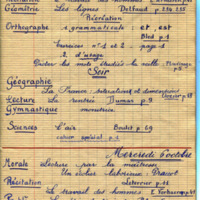 Géométrie Les lignes Delfaud p 234 235
Récréation
Orthographe 1 grammaticale : et, est
Bled p 1
Exercices n° 1 et 2 page 1
d'usage
Dicter les mots étudiés la veille
Soir
Géographie
La France : et dimensions
Lecture La rentrée Dumas p 9
Gymnastique
Sciences L'air Boulet p 69
cahier spécial p 1
Mercredi 6 octobre
Morale Lecture par la maîtresse
Un écolier laborieux
Récitation Leterrier p 11
Le travail des hommes E. Verhaeren